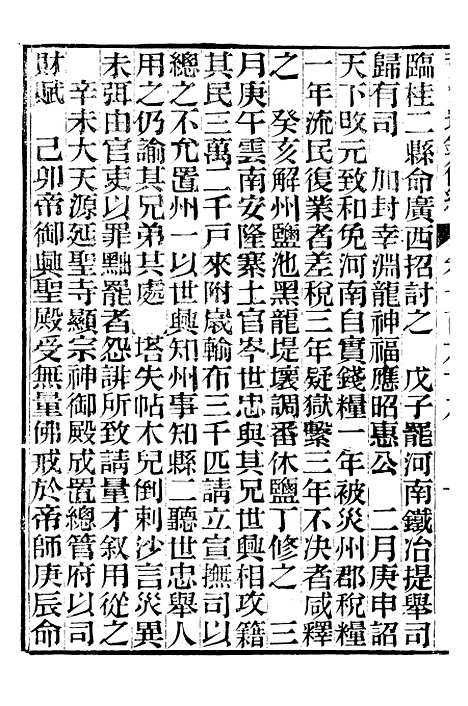 臨桂二縣命廣西招討之　戊子罷河南鐵冶提舉司
歸有司　加封幸淵龍神福應昭惠公　二月庚申詔
天下改元致和免河南自實錢糧一年被災州郡稅糧
一年流民復業者差稅三年疑獄繫三年不決者咸釋
之　癸亥解州鹽池黑龍堤壞調番休鹽丁修之　三
月庚午雲南安隆寨土官岑世忠與其兄世興相攻籍
其民三萬二千戶來附歲輸布三千匹請立宣撫司以
總之不允置州一以世興知州事知縣二聽世忠舉人
用之仍諭其兄弟其處　塔失帖木兒倒剌沙言災異
未弭由官吏以罪黜罷者怨誹所致請量才叙用從之
辛未大天源延聖寺顯宗神御殿成置總管府以司
財賦　己卯帝御興聖殿受無量佛戒於帝師庚辰命